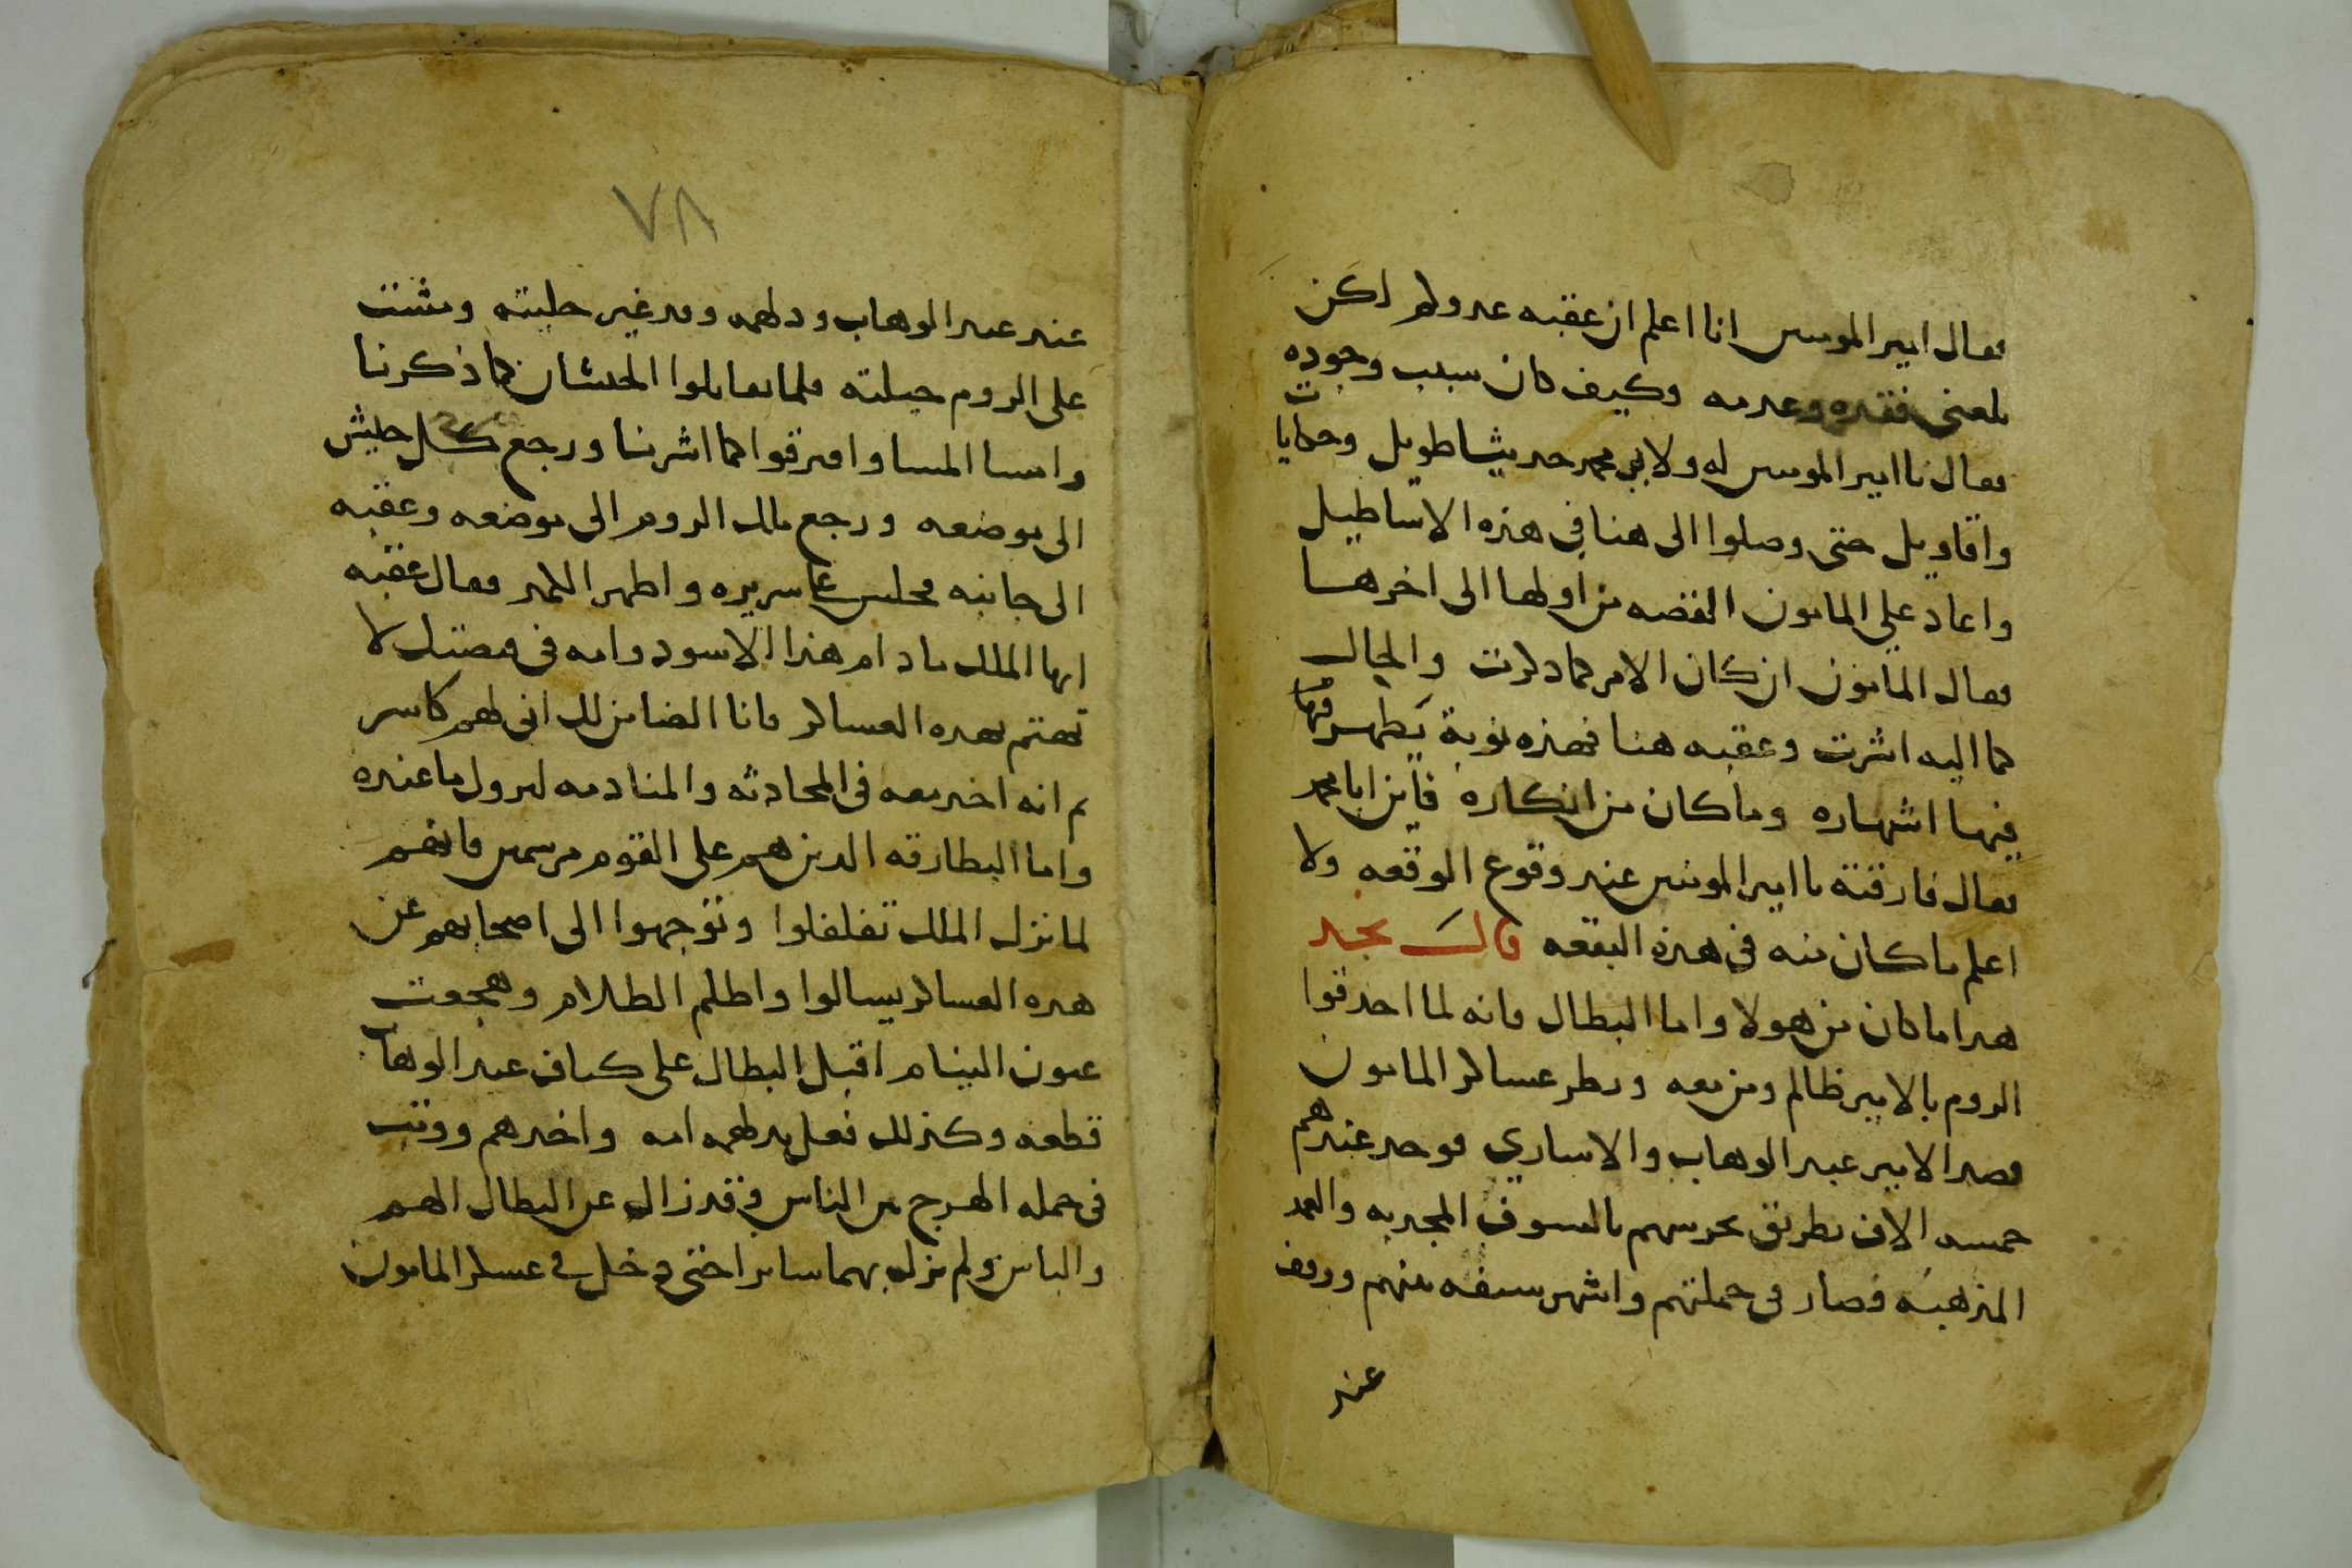 فقال امير المومنين انا اعلم ان عقبه عدولم اكن
بلغني فقده وعدمه وكيف كان سبب وجوده
فقال يا امير المومنين له ولابي محمد حديثا طويل وحكايات
واقاويل حتى وصلوا الى هنا في هذه الاساطيل
واعاد على المامون القصه من اولها الى اخرها
فقال المامون ان كان الامر كما ذكرت والحال
كما اليه اشرت وعقبه هنا فهذه نوبة يظهر فيها
فيها اشهاره وما كان من انكاره فاين ابا محمد
فقال فارقته يا امير المومنين عند وقوع الوقعه ولا
اعلم ما كان منه في هذه البقعه قال نجد
هذا ما كان من هولا واما البطال فانه لما احدقوا
الروم بالامير ظالم ومن معه ونظر عساكر المامون
قصد الامير عبد الوهاب والاساري فوجد عندهم
خمسه الاف بطريق تحرسهم بالسيوف المجذبه والعمد
المذهبه فصار في جملتهم واشهر سيفه بينهم ووقف
عند
٧٨
عند عبد الوهاب ودلهمه وقد غير حليته ومشت
على الروم حيلته فلما تقابلوا الجيشان كما ذكرنا
وامسا المسا وافترقوا كما اشرنا ورجع كل جيش
الى موضعه ورجع ملك الروم الى موضعه وعقبه
الى جانبه فجلس على سريره واظهر الكمد فقال عقبه
ايها الملك ما دام هذا الاسود وامه في قبضتك لا
تهتم بهذه العساكر فانا الضامن لك اني لهم كاسر
ثم انه اخذ معه في المحادثه والمنادمه ليزول ما عنده
واما البطارقه الذين هم على القوم مرسمين فانهم
لما نزل الملك تفلفلوا وتوجهوا الى اصحابهم عن
هذه العساكر يسالوا واظلم الظلام وهجعت
عيون النيام اقبل البطال على كتاف عبد الوهاب
قطعه وكذلك فعل بدلهمه امه واخذهم ووثب
في جمله الهرج من الناس وقد زال عن البطال الهم
والباس ولم يزل بهما سايرا حتى دخل في عسكر المامون